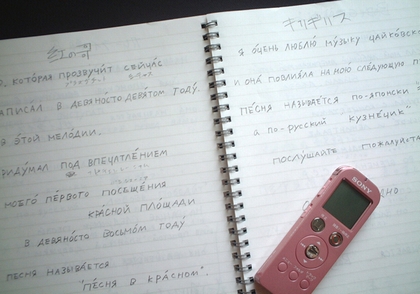 紅の哥
которая прозвучит сейчас
написал в девяносто девятом году.
этой мелодии.
придумал под впечатлением
моего первого посещения
красной площади
в девяносто восьмом году
песня называется
"Песня в красном".
キリギリス
я о́чень люблю́ му́зыку чайко́вск
и она́ повлия́ла на мою следующую п
пе́сня называ́ется по-япо́нски
а по-ру́сский "кузне́чик"
послу́шайте пожа́луйста
SONY